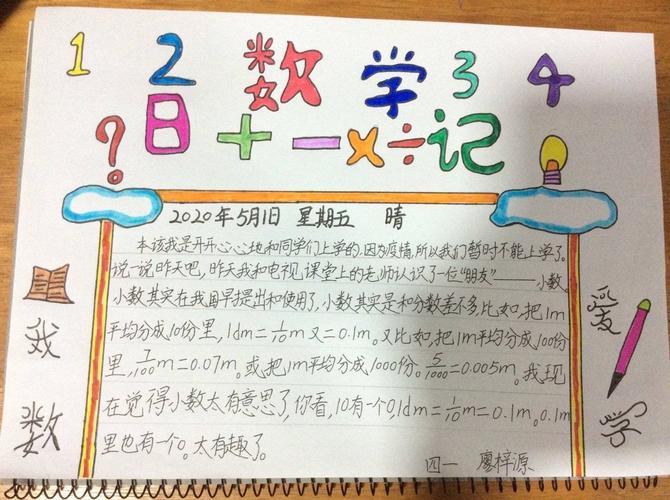 1 2 数学 3 4
? 日 + - × ÷ 记
2020年5月1日 星期五 晴
本该我是开开心心地和同学们上学的,因为疫情,所以我们暂时不能上学了。
说一说昨天吧,昨天我和电视课堂上的老师认识了一位“朋友”——小数。
小数其实在我国早提出和使用了,小数其实是和分数差不多,比如,把1m
平均分成10份里,1dm=1/10m又=0.1m。又比如,把1m平均分成100份
里,7/100m=0.07m。或把1m平均分成1000份。5/1000=0.005m。我现
在觉得小数太有意思了,你看,10有一个0,1dm=1/10m=0.1m。0.1m
里也有一个。太有趣了。
四一 廖梓源
我
爱
数
学